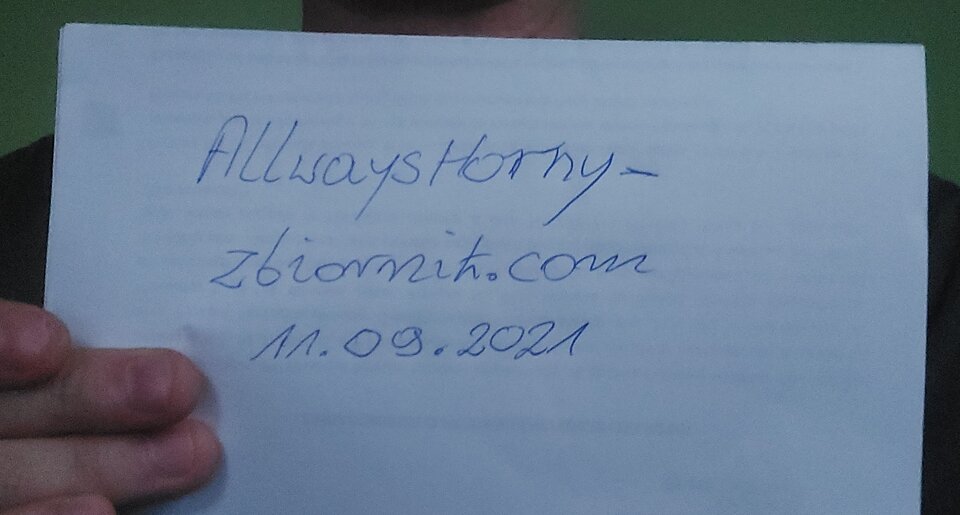 AllwaysHorny-
zbiornik.com
11.09.2021